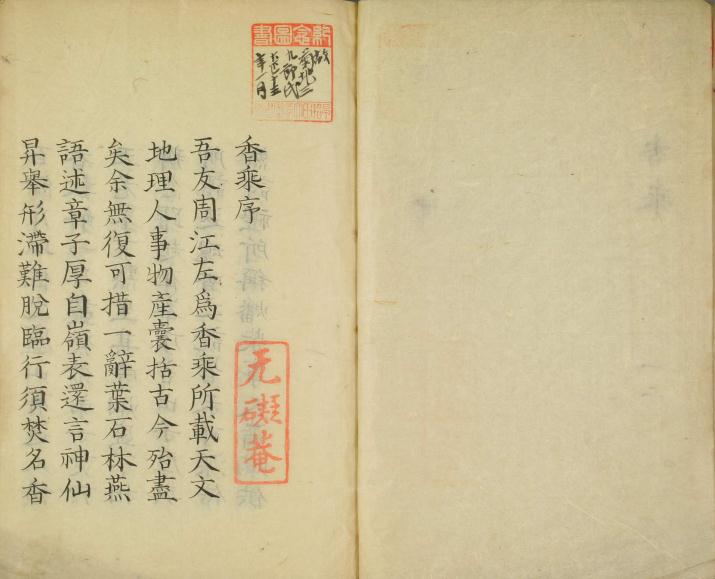 香乘序
吾友周江左爲香乘所載天文
地理人事物產囊括古今殆盡
矣余無復可措一辭葉石林燕
語述章子厚自嶺表還言神仙
昇舉形滯難脫臨行須焚名香
无礙菴
紀念圖書
故
菊池
九郎氏
大正
年一月